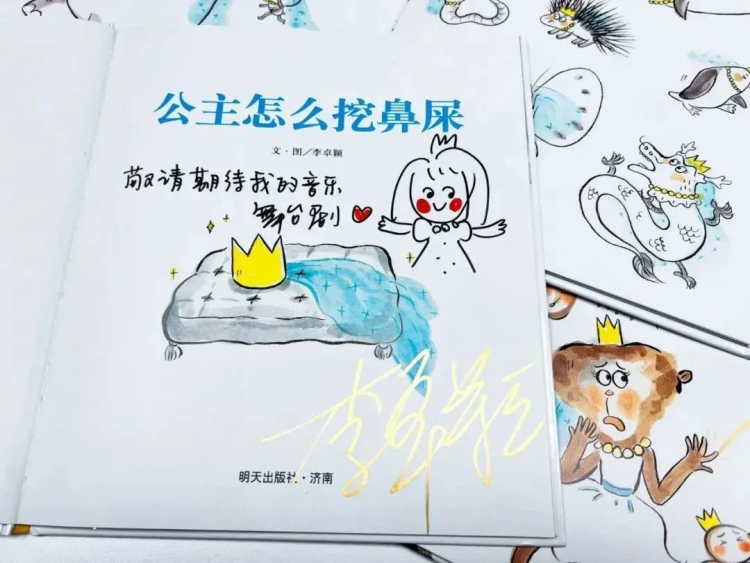 公主怎么挖鼻屎
文·图／李卓颖
敬请期待我的音乐
舞台剧
李卓颖
明天出版社·济南